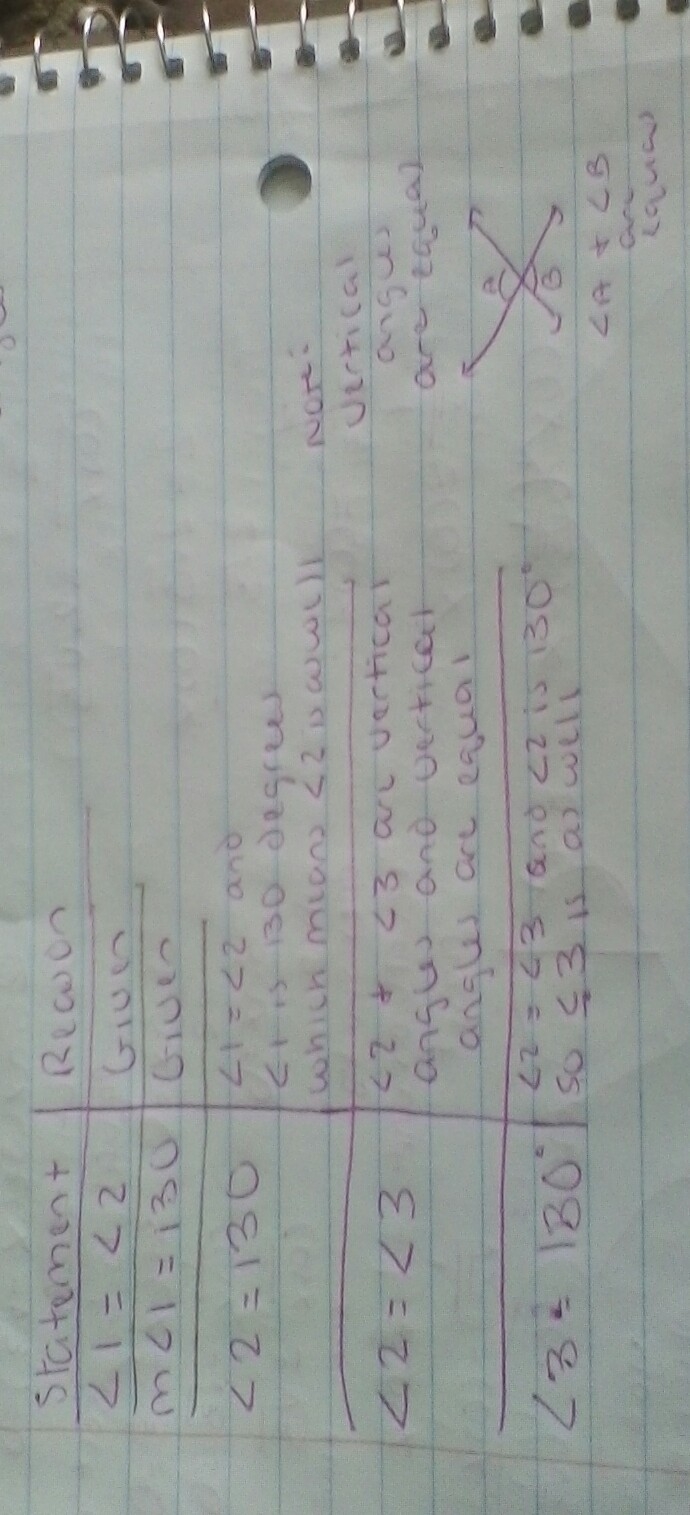 Statement Reason
<1 = <2 Given
m<1 = 130 Given
<2 = 130 <1 = <2 and
<1 is 130 degrees
which means <2 is as well
<2 = <3 <2 + <3 are vertical
angles and vertical
angles are equal
<3 = 130° <2 = <3 and <2 is 130°
so <3 is as well
Note:
Vertical
angles
are equal
A
B
<A + <B
are
equal